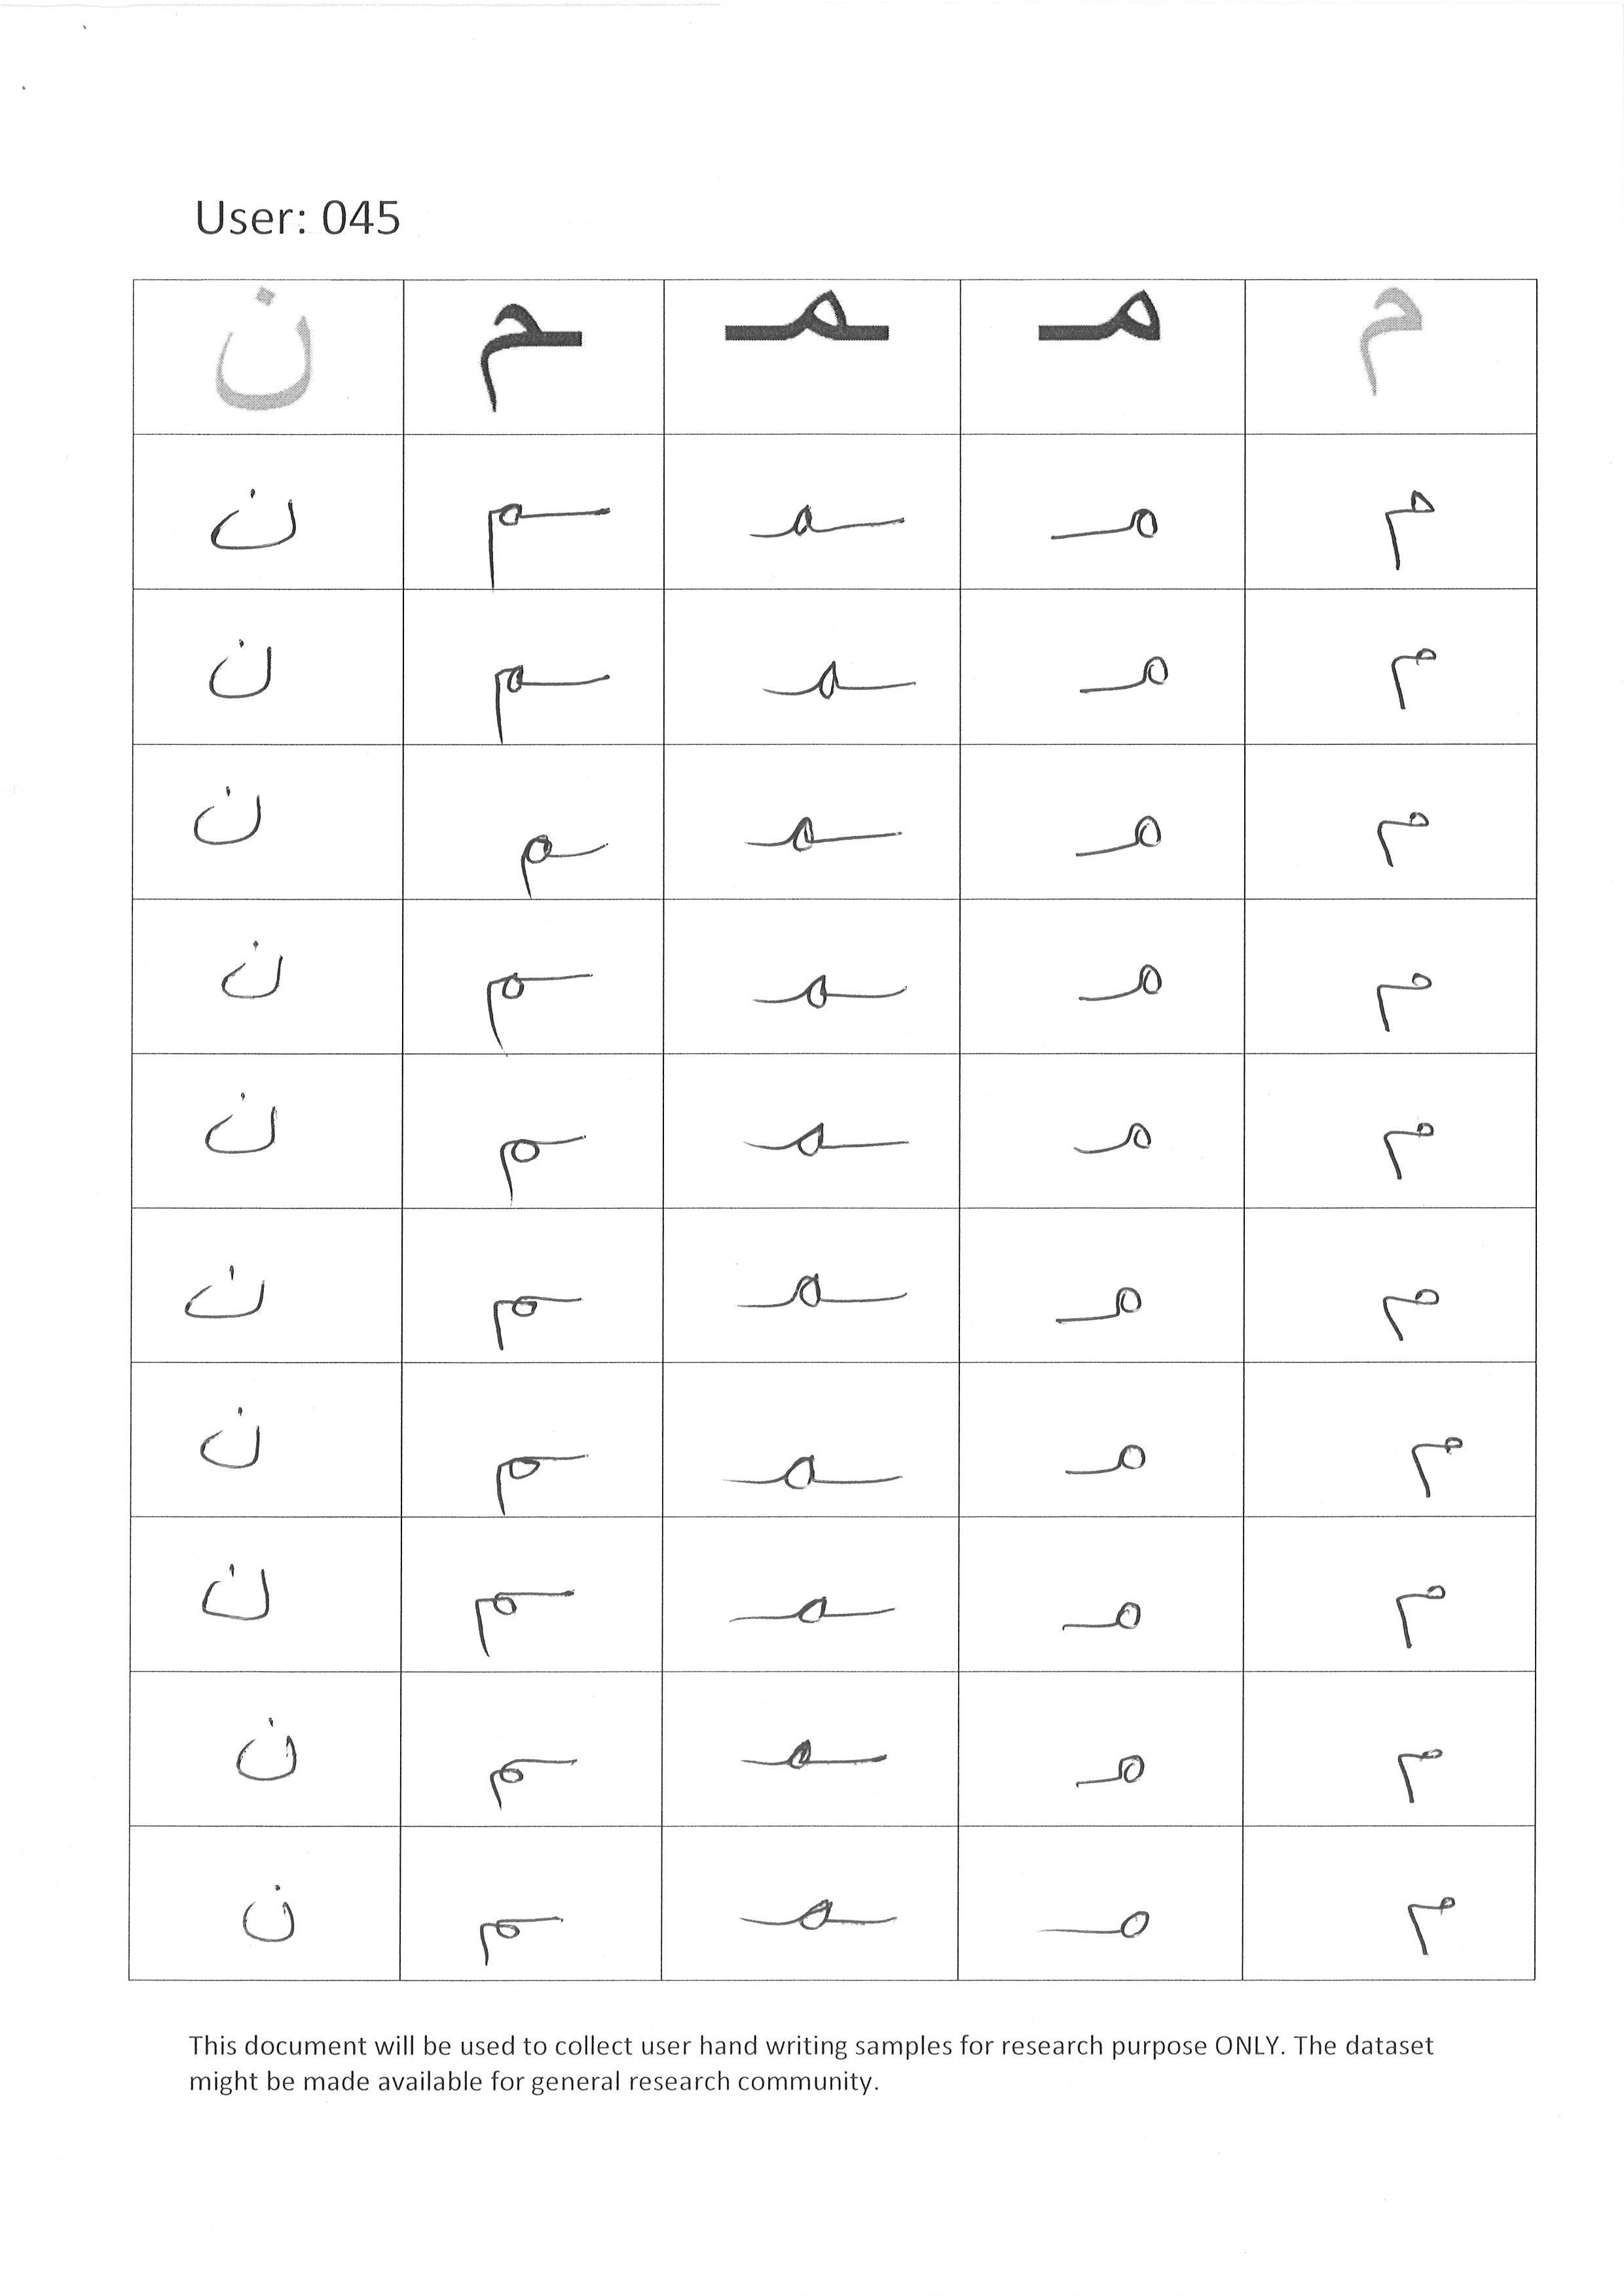 User: 045
م مـ ـمـ ـم ن
م مـ ـمـ ـم ن
م مـ ـمـ ـم ن
م مـ ـمـ ـم ن
م مـ ـمـ ـم ن
م مـ ـمـ ـم ن
م مـ ـمـ ـم ن
م مـ ـمـ ـم ن
م مـ ـمـ ـم ن
م مـ ـمـ ـم ن
م مـ ـمـ ـم ن
This document will be used to collect user hand writing samples for research purpose ONLY. The dataset
might be made available for general research community.